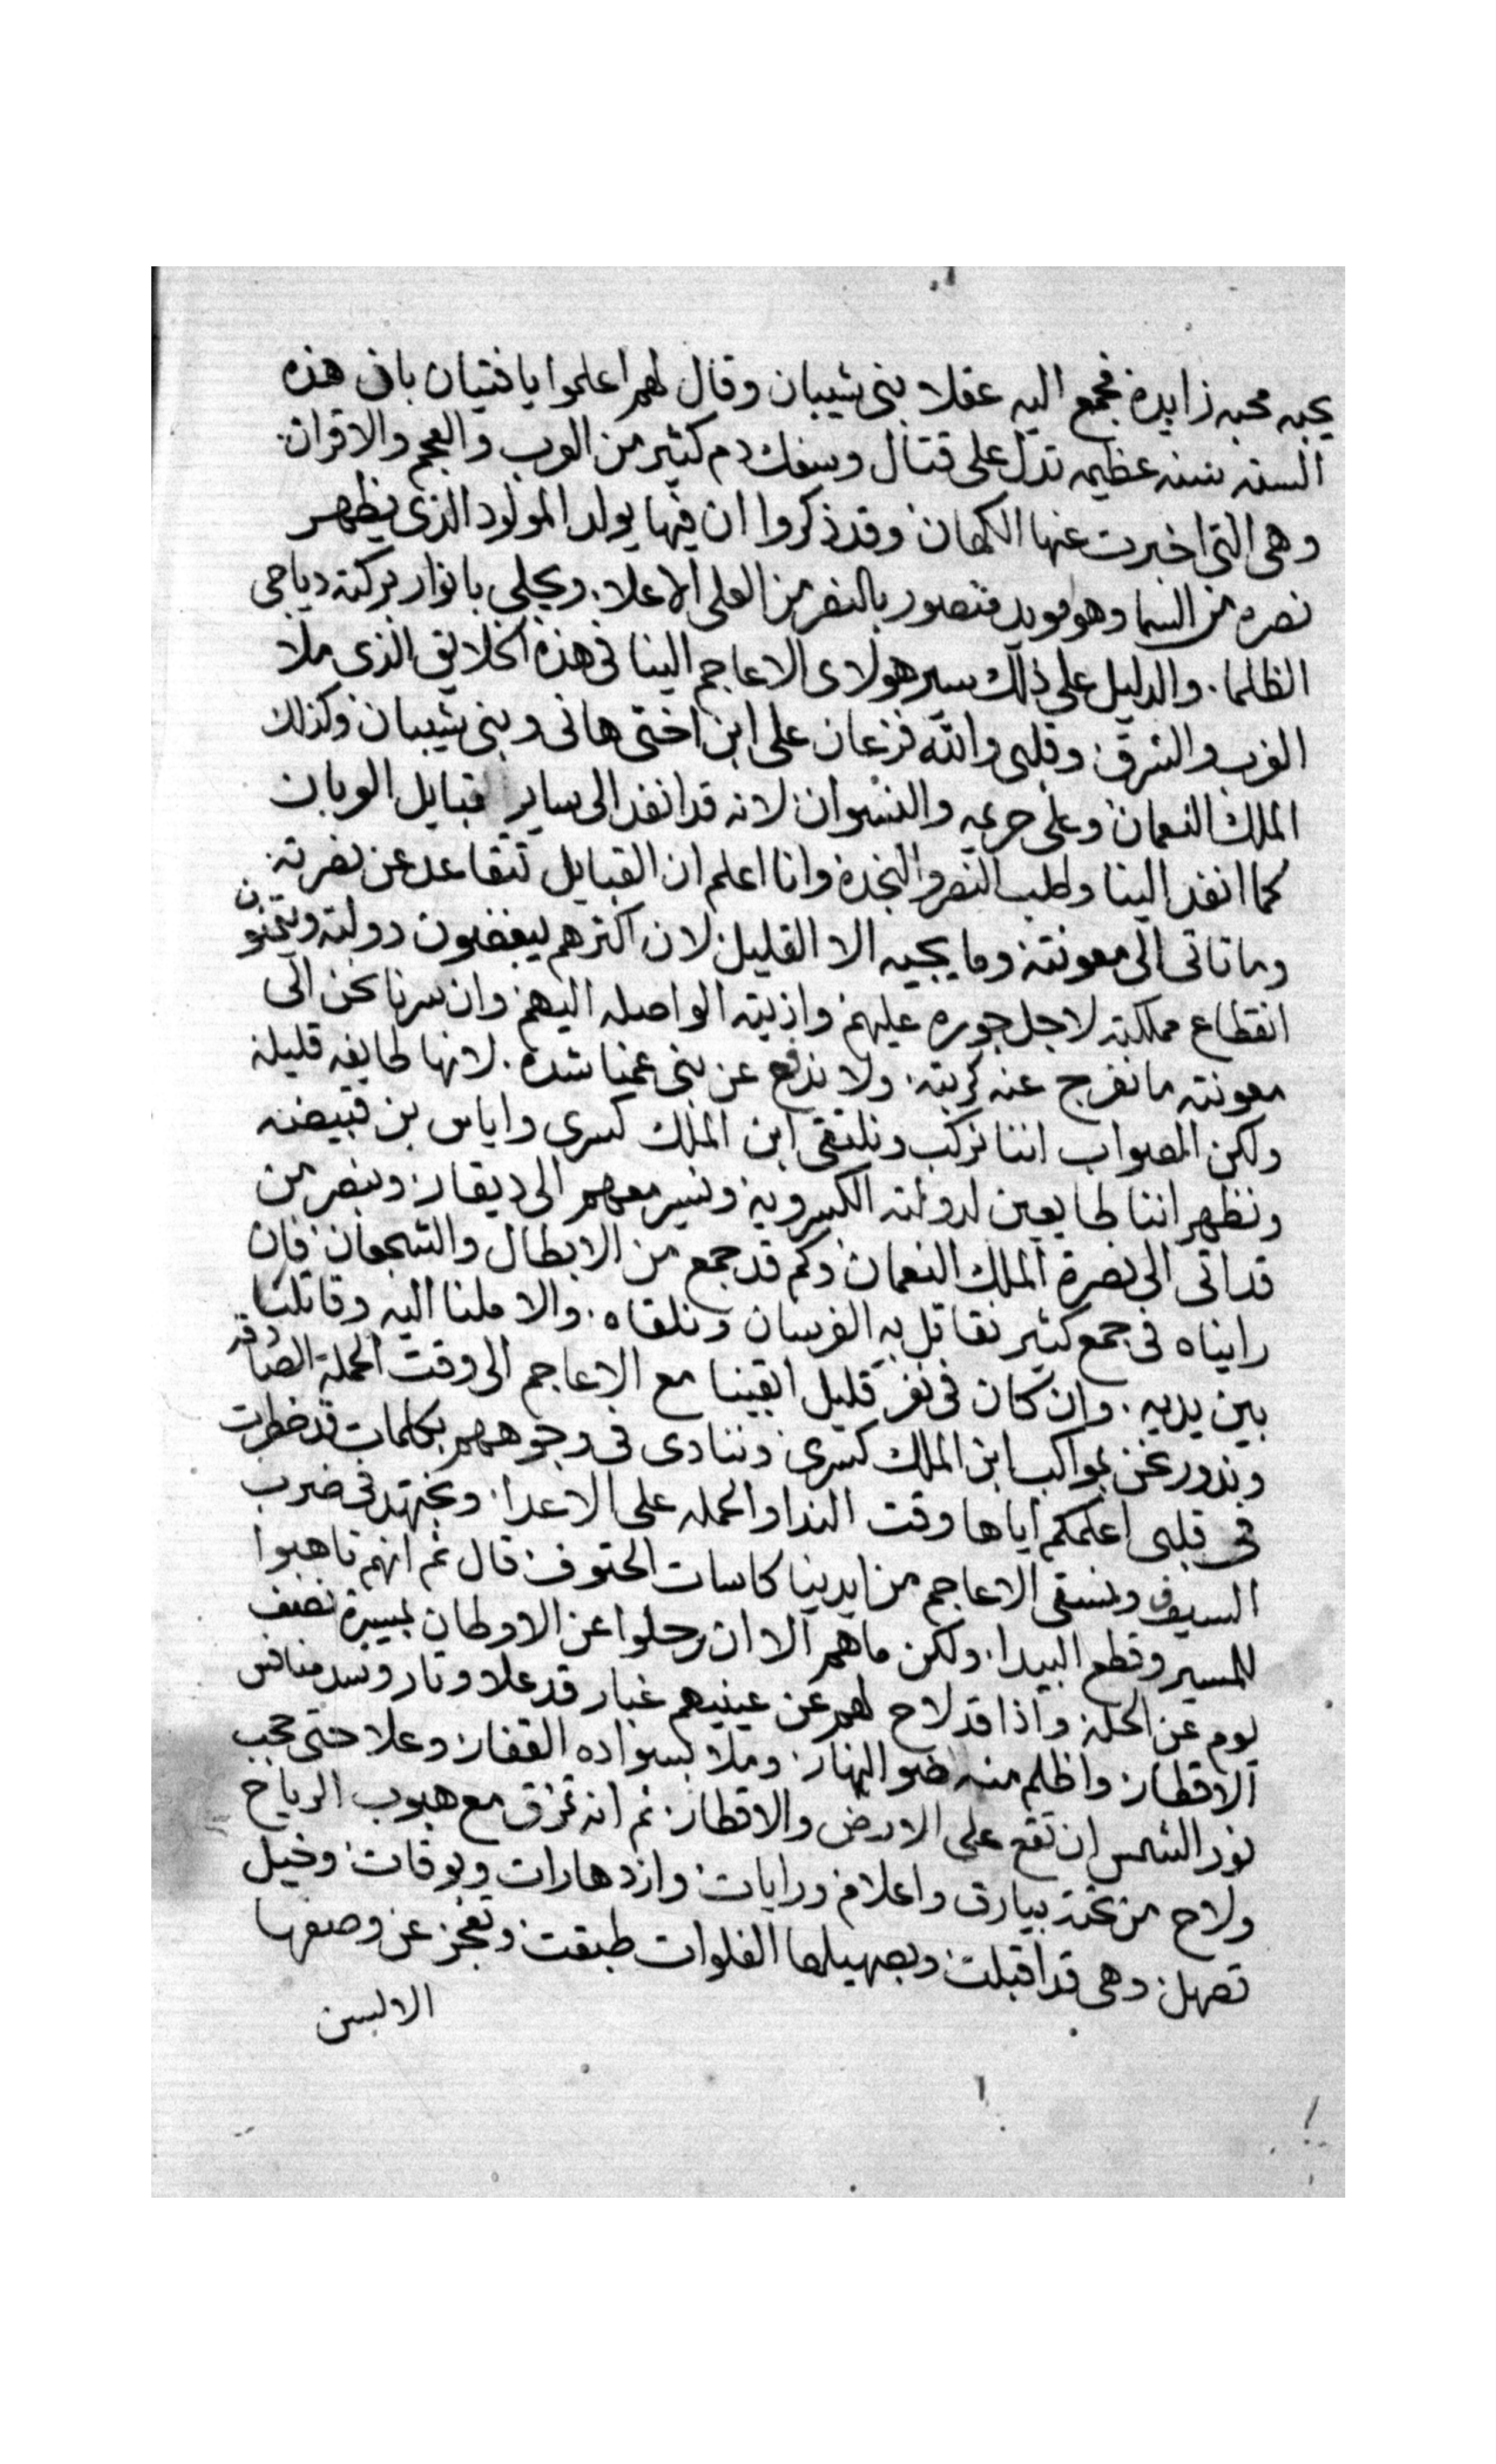 يحبه محبه زايدة فجمع اليه عقلا بنى شيبان وقال لهم اعلموا يا فتيان بان هذه
السنه سنه عظيمه تدل على قتال وسفك دم كثير من العرب والعجم والاقران
وهى التى اخبرت عنها الكهان وقد ذكروا ان فيها يولد المولود الذى يظهر
نصره من السما وهو مويد منصور بالنصر من العلى الاعلا. ويجلى بانوار بركته دياجى
الظلما. والدليل على ذلك سير هولاى الاعاجم الينا فى هذه الخلايق الذى ملا
الغرب والشرق وقلبى والله فزعان على ابن اختى هانى وبنى شيبان وكذلك
الملك النعمان وعلى حريمه والنسوان لانه قد انفد الى ساير قبايل العربان
كما انفد الينا وطلب النصر والنجدة وانا اعلم ان القبايل تتقاعد عن نصرته
وما تاتى الى معونته وما يجيبه الا القليل لان اكثرهم يبغضون دولته ويتمنون
انقطاع مملكته لاجل جوره عليهم واذيته الواصله اليهم وان سرنا نحن الى
معونته ما نفرج عنه كربته. ولا ندفع عن بنى عمنا شدة. لانها طايفه قليلة
ولكن الصواب اننا نركب ونلتقى ابن الملك كسرى واياس بن قبيضه
ونظهر اننا طايعين لدولته الكسرويه ونسير معهم الى ديقار وننصر من
قد اتى الى نصرة الملك النعمان وكم قد جمع من الابطال والشجعان فان
رايناه فى جمع كثير نقاتل به الفرسان ونلقاه. والا ملنا اليه وقاتلنا
بين يديه. وان كان فى نفر قليل ابقينا مع الاعاجم الى وقت الحملة الصادقه
وندور نحن بمواكب ابن الملك كسرى وننادى فى وجوههم بكلمات قد خطرت
فى قلبى اعلمكم اياها وقت الندا والحمله على الاعدا ونجتهد فى ضرب
السيوف ونسقى الاعاجم من ايدينا كاسات الحتوف قال ثم انهم تاهبوا
للمسير وقطع البيدا. ولكن ما هم الا ان رحلوا عن الاوطان بمسيرة نصف
يوم عن الحلة واذا قد لاح لهم عن عينيهم غبار قد علا وثار وسد منافس
الاقطار واظلم منه ضو النهار وملا بسواده القفار وعلا حتى حجب
نور الشمس ان تقع على الارض والاقطار ثم انه تمزق مع هبوب الرياح
ولاح من تحته بيارق واعلام ورايات وازدهارات وبوقات وخيل
تصهل وهى قد اقبلت وبصهيلها الفلوات طبقت وتعجز عن وصفها
الالسن